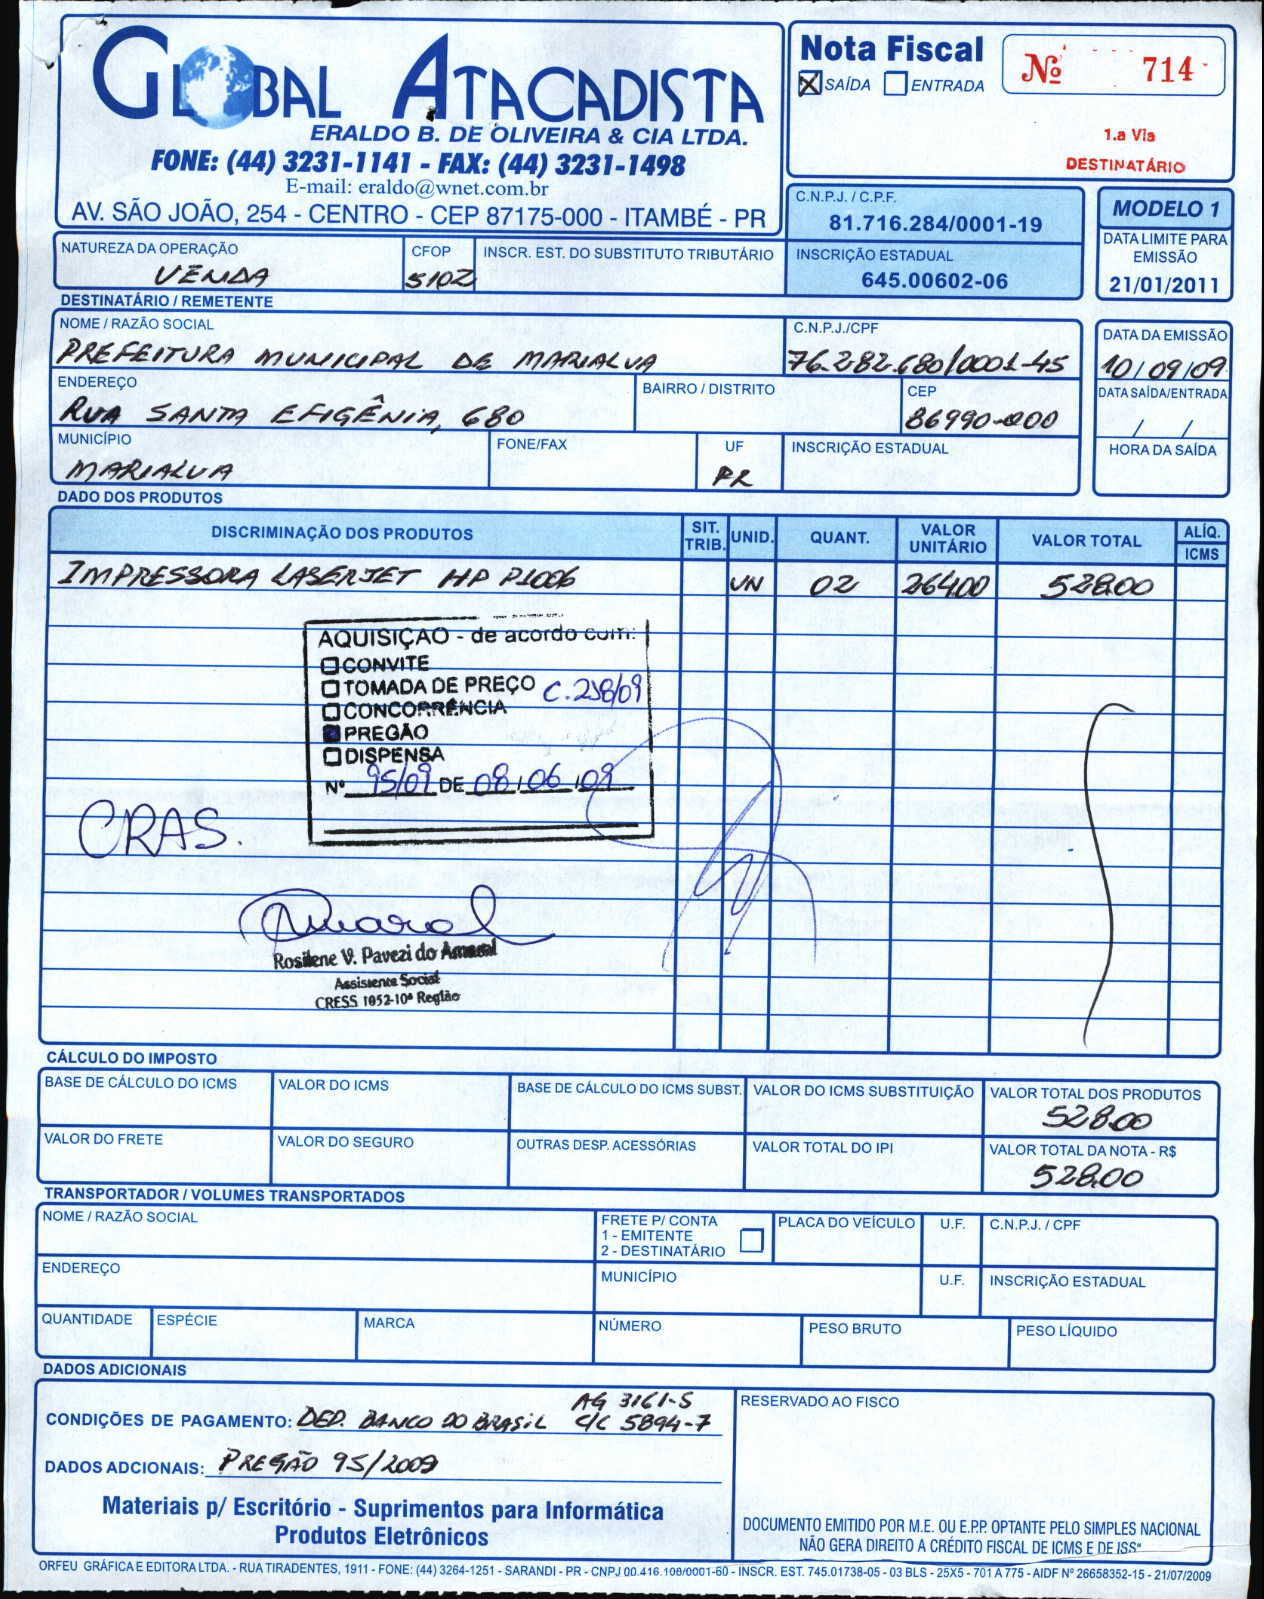 GLOBAL ATACADISTA
ERALDO B. DE OLIVEIRA & CIA LTDA.
FONE: (44) 3231-1141 - FAX: (44) 3231-1498
E-mail: eraldo@wnet.com.br
AV. SÃO JOÃO, 254 - CENTRO - CEP 87175-000 - ITAMBÉ - PR
Nota Fiscal
X SAÍDA ENTRADA
Nº 714
1.a Via
DESTINATÁRIO
C.N.P.J. / C.P.F.
81.716.284/0001-19
INSCRIÇÃO ESTADUAL
645.00602-06
MODELO 1
DATA LIMITE PARA
EMISSÃO
21/01/2011
NATUREZA DA OPERAÇÃO
VENDA
CFOP
5102
INSCR. EST. DO SUBSTITUTO TRIBUTÁRIO
DESTINATÁRIO / REMETENTE
NOME / RAZÃO SOCIAL
PREFEITURA MUNICIPAL DE MARIALVA
C.N.P.J./CPF
76.282.680/0001-45
DATA DA EMISSÃO
10/09/09
ENDEREÇO
RUA SANTA EFIGÊNIA, 680
BAIRRO / DISTRITO
CEP
86990-000
DATA SAÍDA/ENTRADA
/ /
MUNICÍPIO
MARIALVA
FONE/FAX
UF
PR
INSCRIÇÃO ESTADUAL
HORA DA SAÍDA
DADO DOS PRODUTOS
DISCRIMINAÇÃO DOS PRODUTOS SIT. TRIB. UNID. QUANT. VALOR UNITÁRIO VALOR TOTAL ALÍQ. ICMS
IMPRESSORA LASERJET HP P1006 UN 02 264,00 528,00
AQUISIÇÃO - de acordo com:
CONVITE
TOMADA DE PREÇO C. 258/09
CONCORRÊNCIA
PREGÃO
DISPENSA
Nº 95/09 DE 08/06/09
CRAS.
Amaral
Rosilene V. Pavezi do Amaral
Assistente Social
CRESS 1952-10ª Região
CÁLCULO DO IMPOSTO
BASE DE CÁLCULO DO ICMS
VALOR DO ICMS
BASE DE CÁLCULO DO ICMS SUBST.
VALOR DO ICMS SUBSTITUIÇÃO
VALOR TOTAL DOS PRODUTOS
528,00
VALOR DO FRETE
VALOR DO SEGURO
OUTRAS DESP. ACESSÓRIAS
VALOR TOTAL DO IPI
VALOR TOTAL DA NOTA - R$
528,00
TRANSPORTADOR / VOLUMES TRANSPORTADOS
NOME / RAZÃO SOCIAL
FRETE P/ CONTA
1 - EMITENTE
2 - DESTINATÁRIO
PLACA DO VEÍCULO
U.F.
C.N.P.J. / CPF
ENDEREÇO
MUNICÍPIO
U.F.
INSCRIÇÃO ESTADUAL
QUANTIDADE
ESPÉCIE
MARCA
NÚMERO
PESO BRUTO
PESO LÍQUIDO
DADOS ADICIONAIS
AG 3161-5
CONDIÇÕES DE PAGAMENTO: DEP. BANCO DO BRASIL C/C 5894-7
DADOS ADCIONAIS: PREGÃO 95/2009
Materiais p/ Escritório - Suprimentos para Informática
Produtos Eletrônicos
RESERVADO AO FISCO
DOCUMENTO EMITIDO POR M.E. OU E.P.P. OPTANTE PELO SIMPLES NACIONAL
NÃO GERA DIREITO A CRÉDITO FISCAL DE ICMS E DE ISS"
ORFEU GRÁFICA E EDITORA LTDA. - RUA TIRADENTES, 1911 - FONE: (44) 3264-1251 - SARANDI - PR - CNPJ 00.416.108/0001-60 - INSCR. EST. 745.01738-05 - 03 BLS - 25X5 - 701 A 775 - AIDF Nº 26658352-15 - 21/07/2009